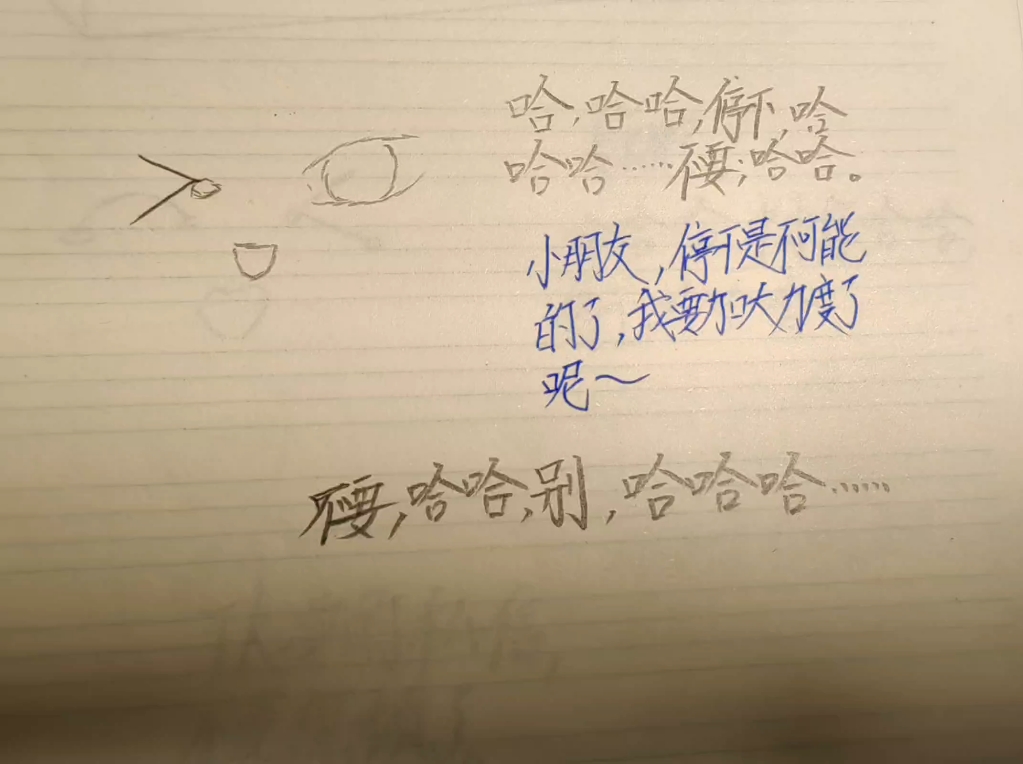 哈,哈哈,停下,哈
哈哈……不要,哈哈。
小朋友,停下是不可能
的了,我要加大力度了
呢～
不要,哈哈,别,哈哈哈……